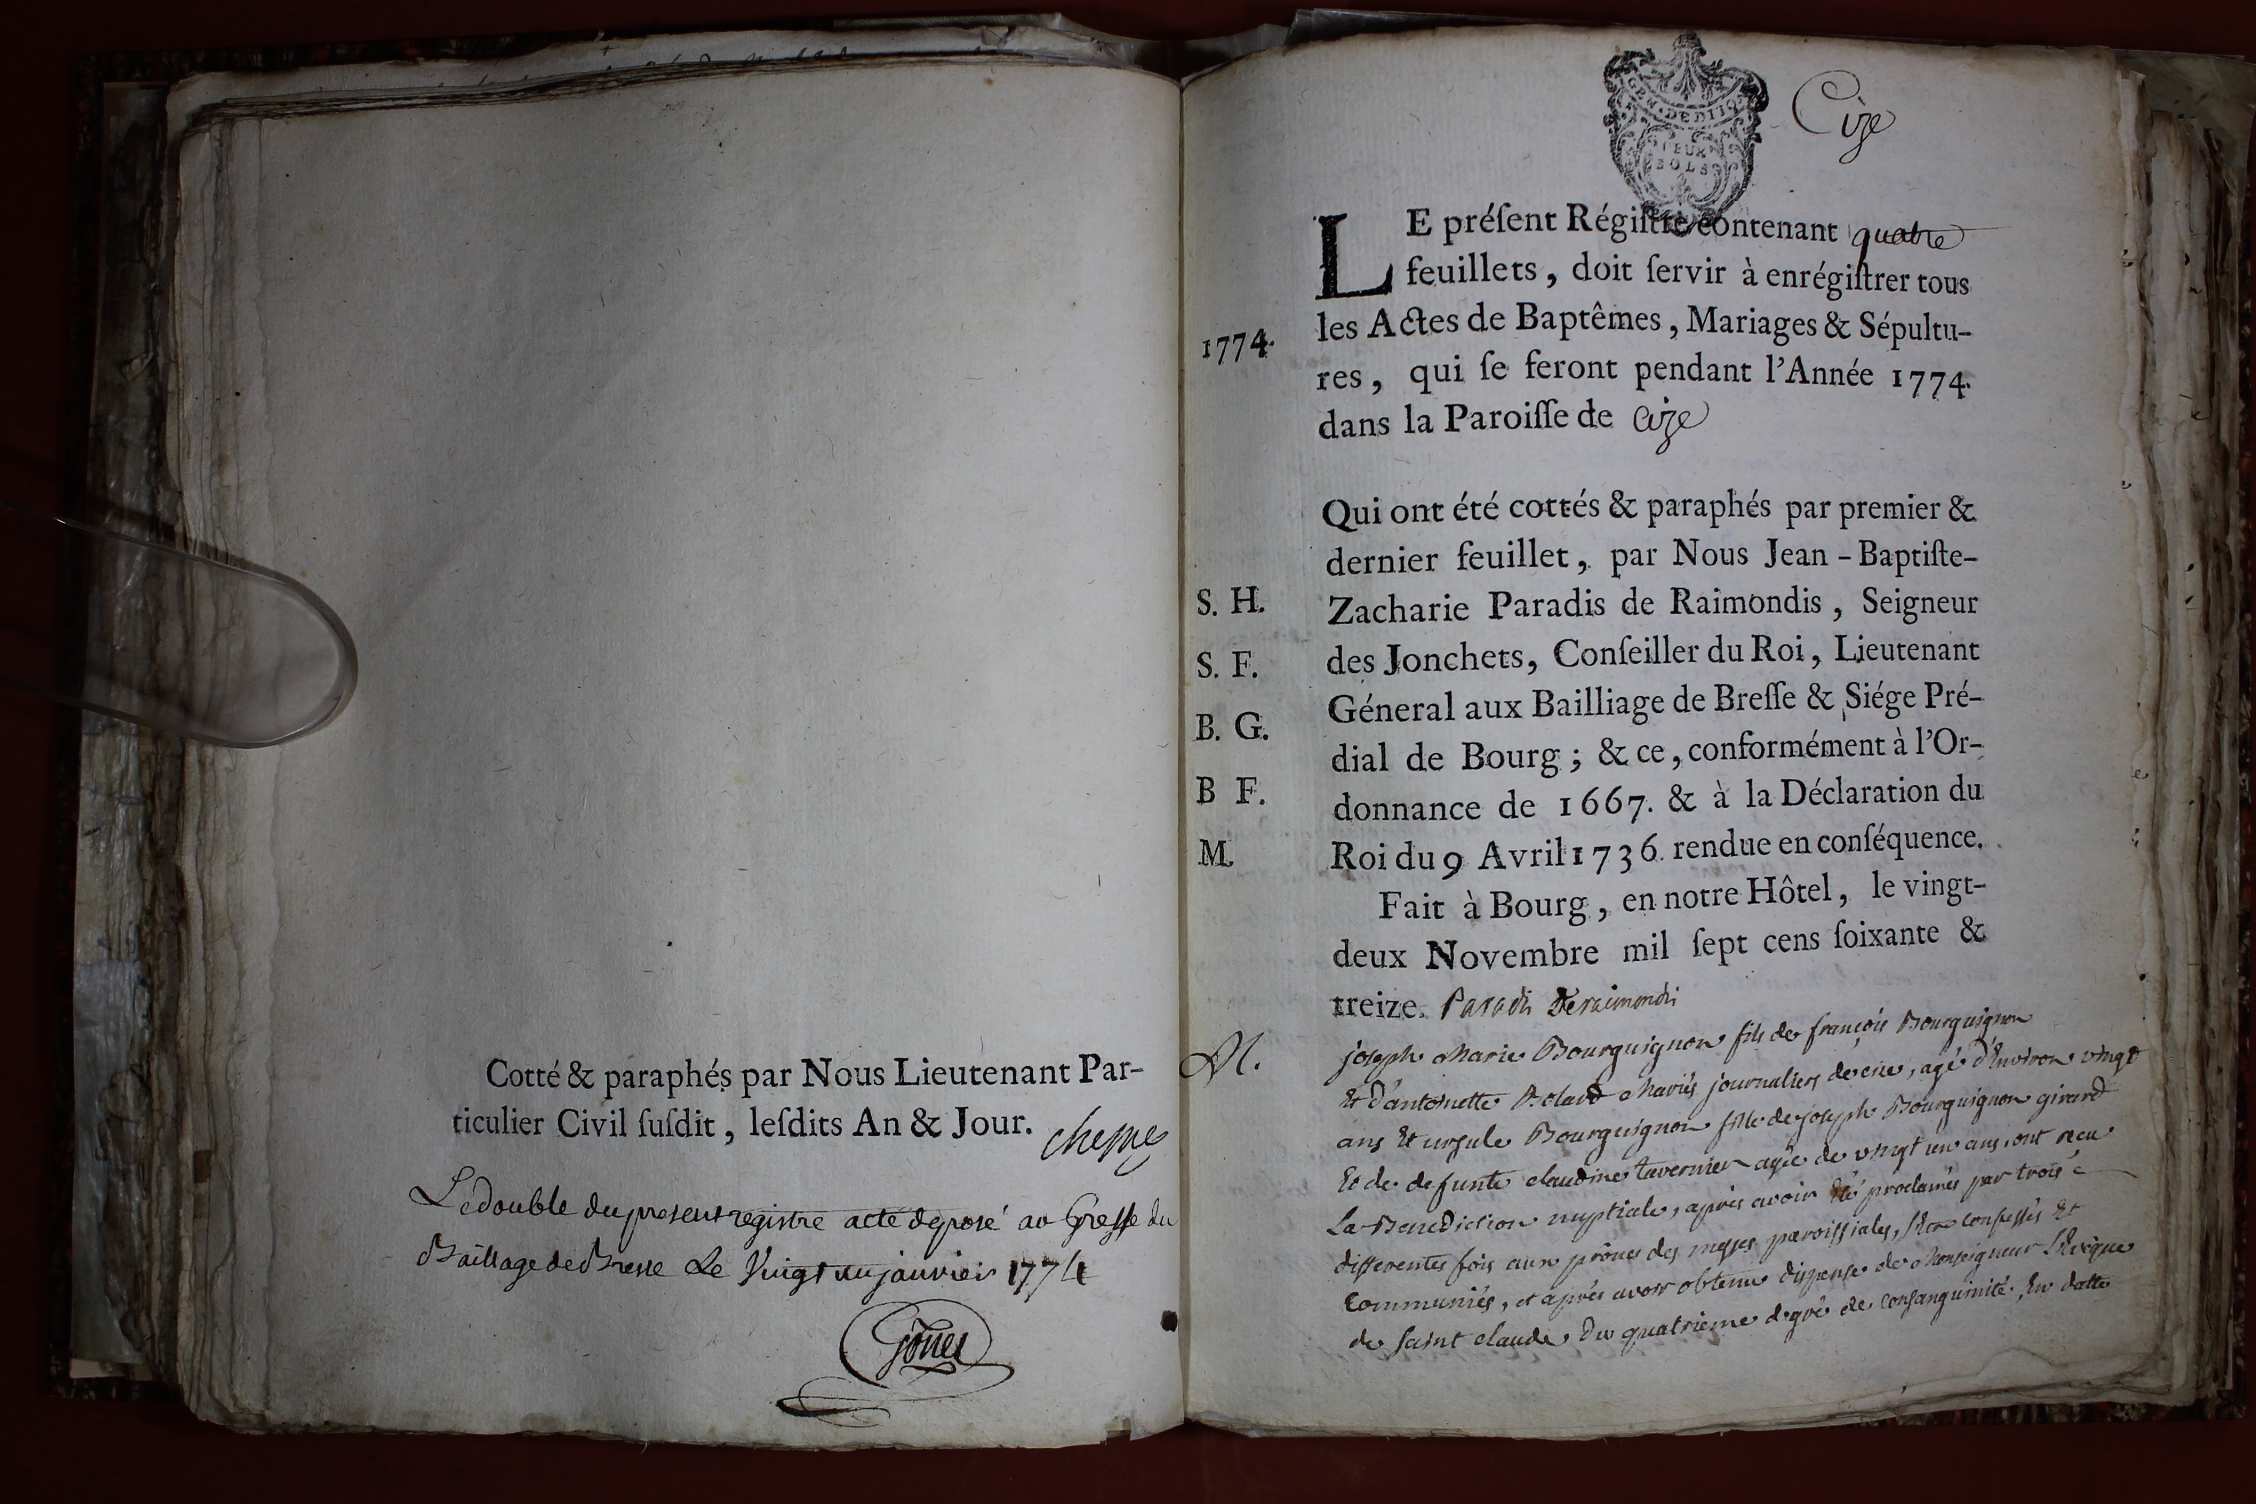 Cotté & paraphés par Nous Lieutenant Par-
ticulier Civil ſuſdit, leſdits An & Jour.
Le double du present registre acte deposé au Greffe du
Baillage de Bresse Le Vingt un janvier 1774
GEN. DE DIJO
DEUX
SOLS
Cize
LE préſent Régiſtre contenant quatre
feuillets, doit ſervir à enrégiſtrer tous
les Actes de Baptêmes, Mariages & Sépultu-
1774.
res, qui ſe feront pendant l'Année 1774.
dans la Paroiſſe de Cize
Qui ont été cottés & paraphés par premier &
dernier feuillet, par Nous Jean-Baptiſte-
S. H.
Zacharie Paradis de Raimondis, Seigneur
S. F.
des Jonchets, Conſeiller du Roi, Lieutenant
Géneral aux Bailliage de Breſſe & Siége Pré-
B. G.
dial de Bourg; & ce, conformément à l'Or-
B F.
donnance de 1667. & à la Déclaration du
M.
Roi du 9 Avril 1736. rendue en conſéquence.
Fait à Bourg, en notre Hôtel, le vingt-
deux Novembre mil ſept cens ſoixante &
treize. Paradis Deraimondis
M.
joseph Marie Bourguignon fils de françois Bourguignon
Et d'antoinette Bolard Mariés journaliers de cize, agé d'Environ vingt
ans Et ursule Bourguignon fille de joseph Bourguignon girard
Et de defunte claudine tavernier agée de vingt un ans, ont recu
La Benediction nuptiale, apres avoir été proclamés par trois
differentes fois aux prônes des messes paroissiales, s'etre confessés Et
Communiés, et après avoir obtenu dispense de Monseigneur L'Evêque
de saint claude du quatrieme degré de consanguinité, En datte